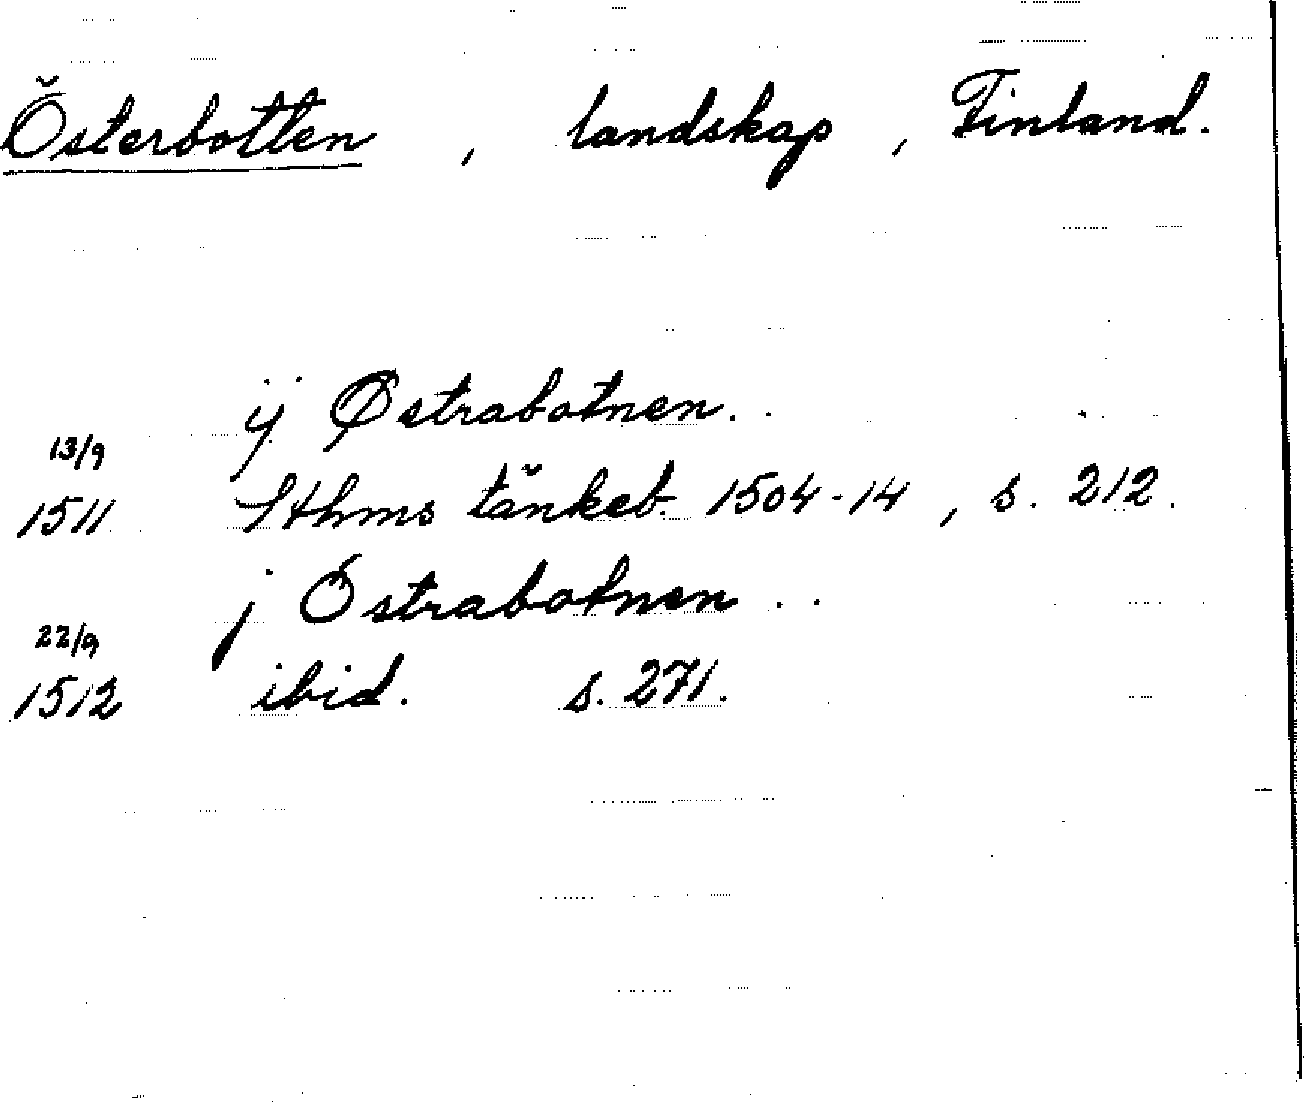 Österbotten, landskap, Finland.
ij Østrabotnen. .
13/9
1511 Sthms tänkeb. 1504-14, s. 212.
j Östrabotnen . .
22/9
1512 ibid. s. 271.